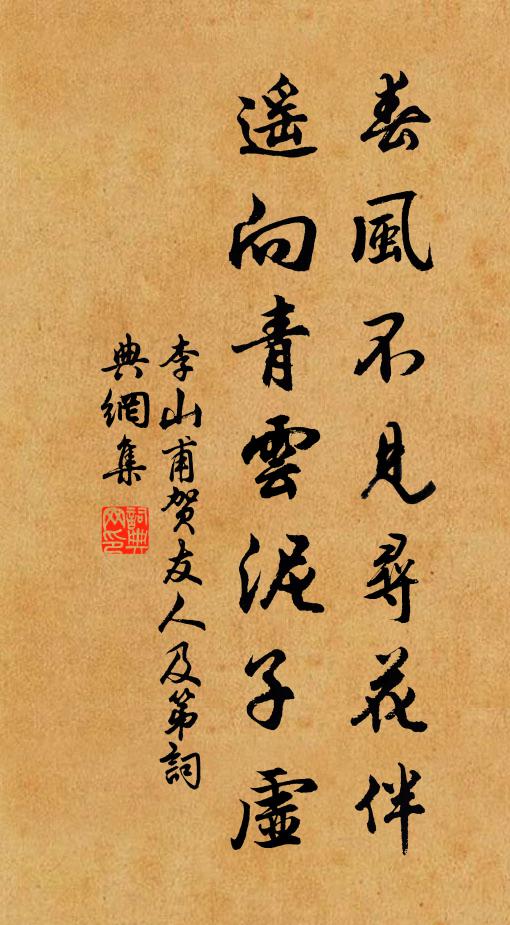 春風不見尋花伴
遥向青雲泥子虛
李山甫賀友人及第詞
典網集
詞典網印